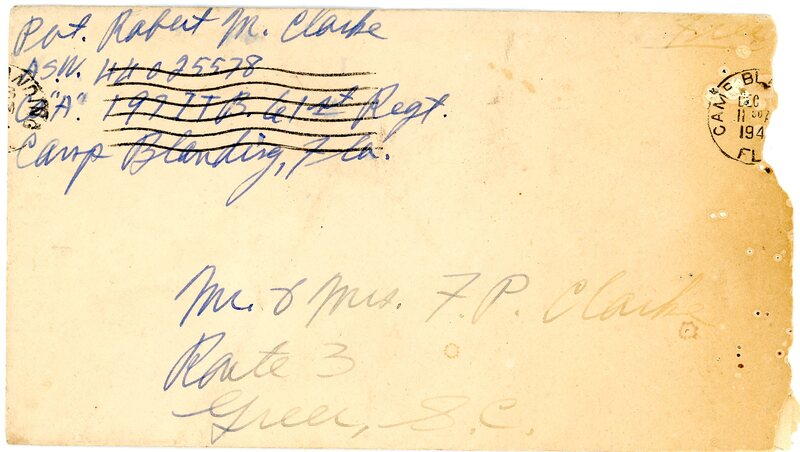 Pvt. Robert M. Clarke
Free
ASN. 44025578
Co "A". 199 ITB. 61st Regt.
Camp Blanding, Fla.
CAMP BL
DEC
11
194
FL
Mr. & Mrs. F. P. Clarke
Route 3
Greer, S.C.